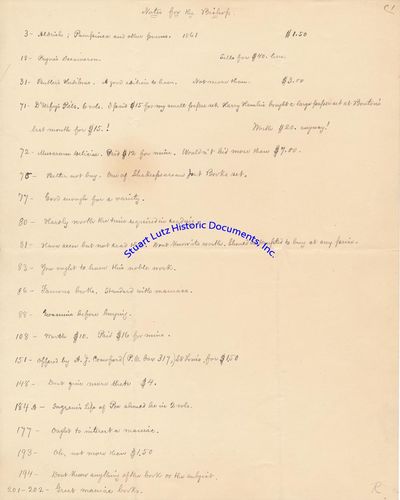 Notes for the Bishop.
C1
3- Aldrich; Pampinea and other poems. 1861 $1.50
18- Payne's Decameron. Sells for $40. here.
31- Butler's Hudibras. A good edition to have. Not more than $3.00
71- D'Urfey's Pills. 6 vols. I paid $15 for my small paper set. Harry Hamlin bought a large paper set at Bouton's
last month for $15.! Worth $20. anyway!
72- Musarum Deliciae. Paid $12 for mine. Wouldn't bid more than $7.00.
75- Better not buy. One of Shakespearean Jest Books set.
77- Good enough for a variety.
80- Hardly worth the time required in reading.
81- Have seen but not read this. Dont know its worth. Should to buy at any price.
83- You ought to know this noble work.
86- Famous books. Standard with maniacs.
88- Examine before buying.
108- Worth $10. Paid $16 for mine.
151- Offered by A. J. Crawford (P.O. Box 317,) St Louis, for $1.50
148- Dont give more than $4.
184- Ingram's Life of Poe should be in 2 vols.
177- Ought to interest a maniac.
193- Oh, not more than $1.50
194- Dont know anything of the book or the subject.
201-202- Great maniac books.
Stuart Lutz Historic Documents, Inc.